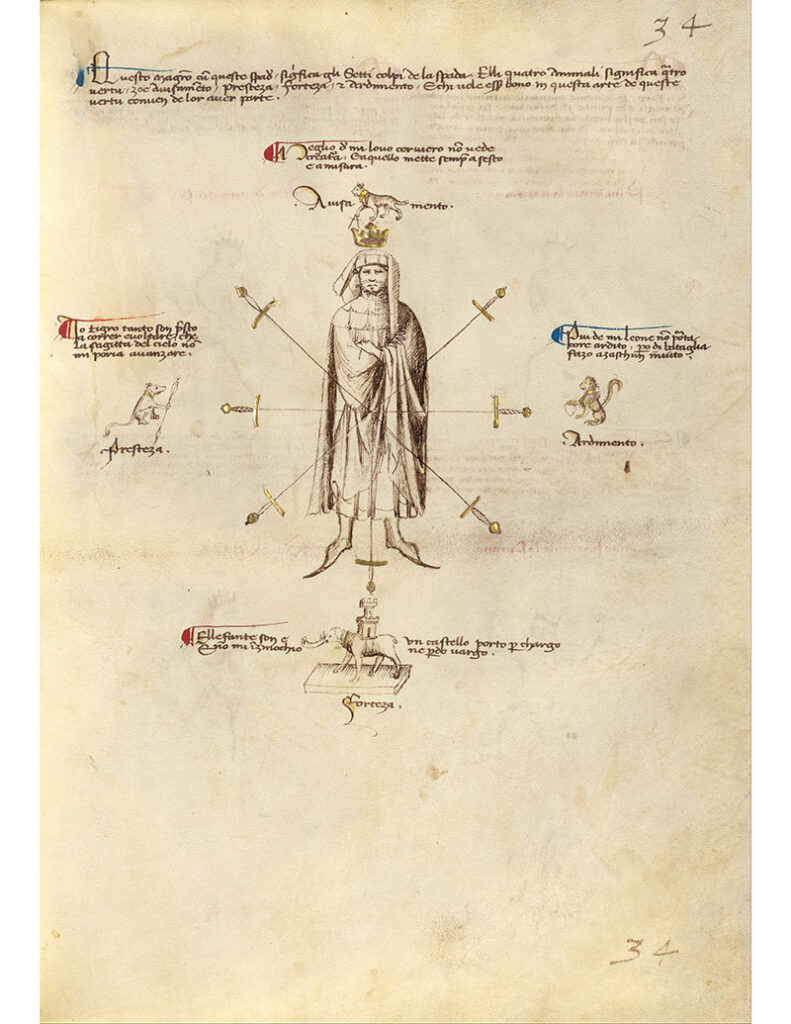 34
Questo Magrõ cũ queste spad' significa gli Setti colpi de la spada. Elli quatro Animali significa q̃tro
vertù, zoe avisamẽto, presteza, forteza, & ardimento, E chi vole ess̃ bono in questa arte de queste
vertu conven de lor aver parte.
Meglio d' mi lovo cerviero nõ vede
creat̃a, E aquello mette semp̃ a sesto
e a misura.
Avisa mento.
Io tigro tanto son p̃sto
a correr e voltare, che
la sagitta del cielo nõ
mi poria avanzare.
Presteza.
Più de mi leone nõ p̃ta
core ardito, p̃o di bataglia
fazo a zaschun invito.
Ardimento.
Ellefante son e
nõ mi ĩzinochio
un castello porto p̃ chargo
ne p̃do vargo.
Forteza.
34